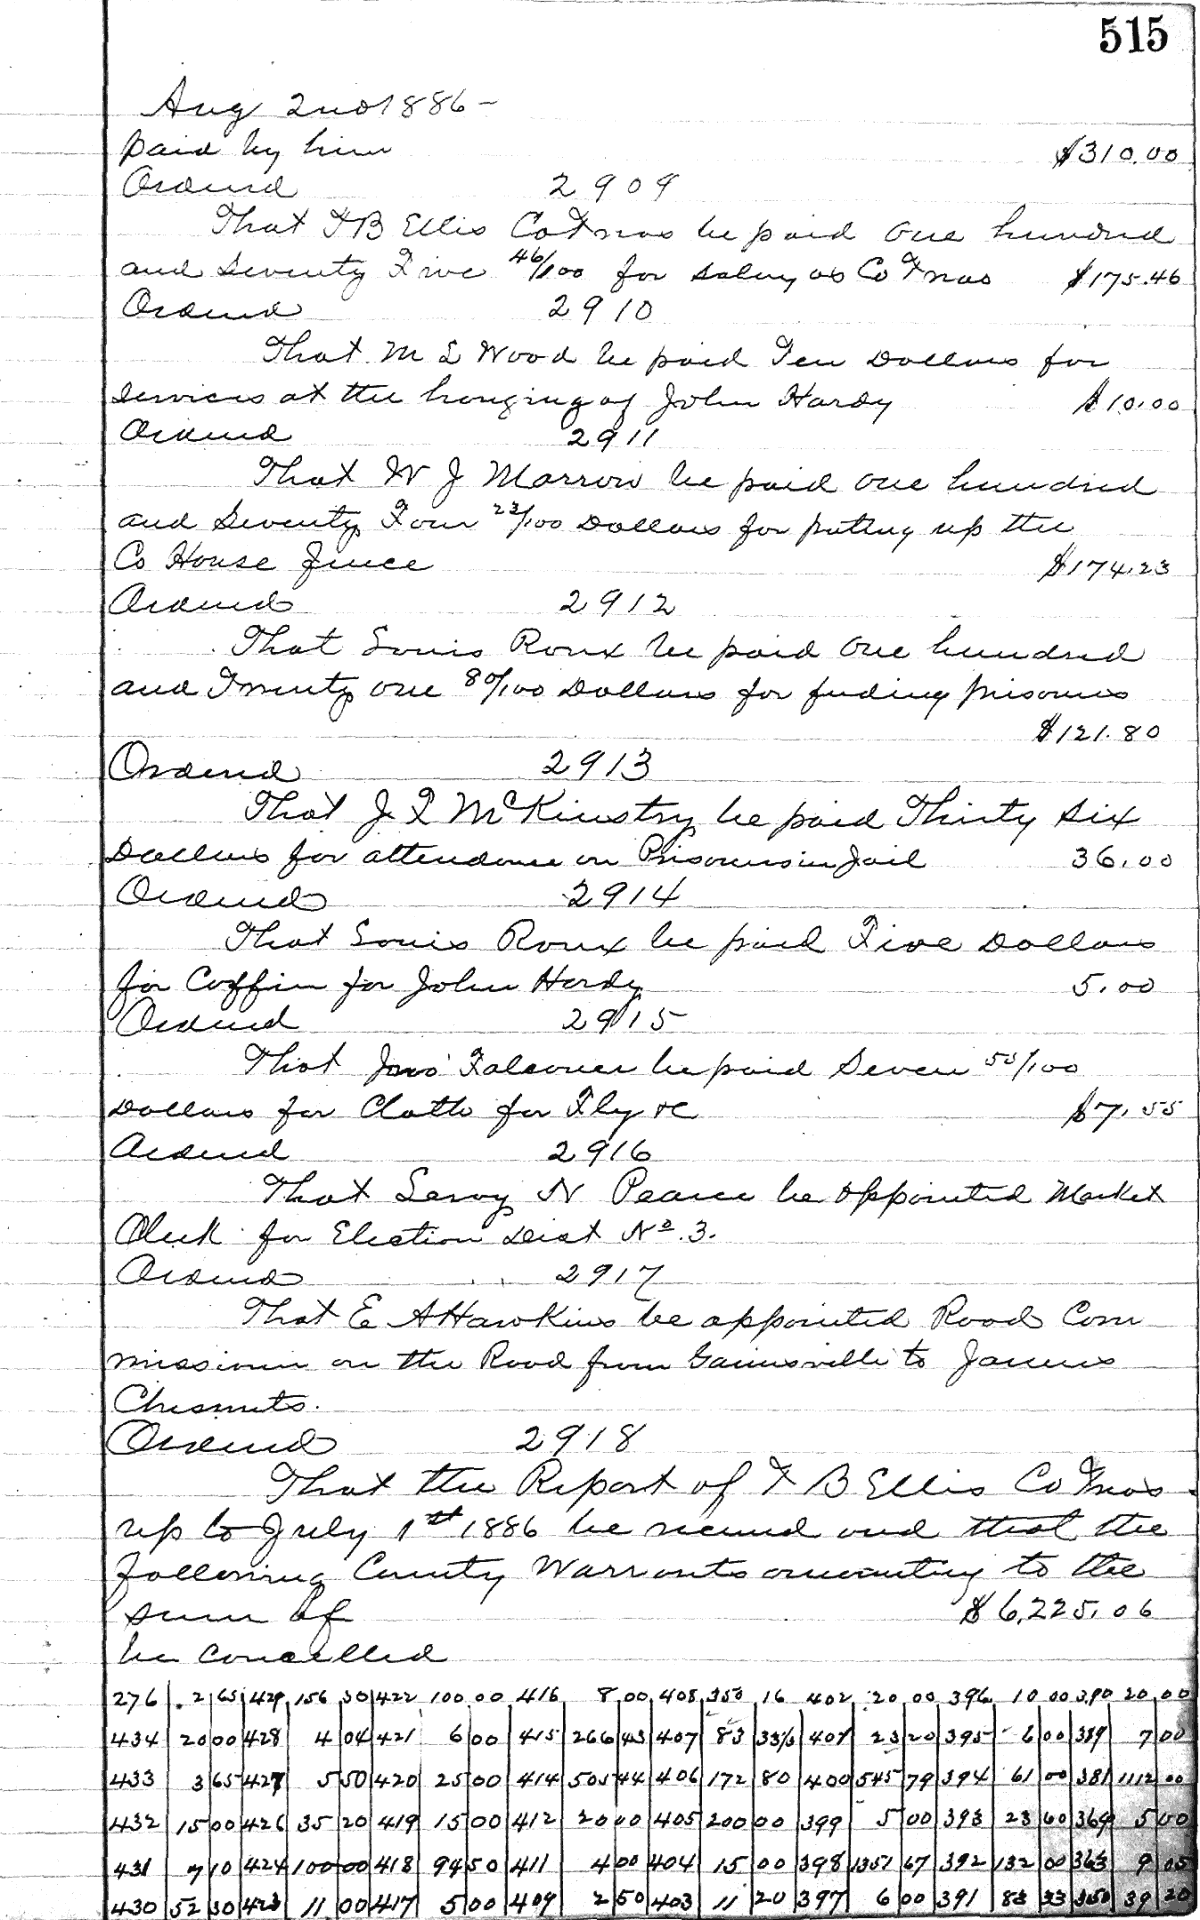 515
Aug 2nd 1886 -
paid by him $310.00
Ordered 2909
That F B Ellis Co Treas be paid One hundred
and Seventy Five 46/100 for Salary as Co Treas $175.46
Ordered 2910
That M L Wood be paid Ten Dollars for
services at the hanging of John Hardy $10.00
Ordered 2911
That W J Marrow be paid One hundred
and Seventy Four 23/100 Dollars for putting up the
Co House fence $174.23
Ordered 2912
That Louis Roux be paid One hundred
and Twenty one 80/100 Dollars for feeding prisoners
$121.80
Ordered 2913
That J. F. McKinstry be paid Thirty Six
Dollars for attendance on Prisoners in Jail 36.00
Ordered 2914
That Louis Roux be paid Five Dollars
for Coffin for John Hardy 5.00
Ordered 2915
That Jno Falconer be paid Seven 55/100
Dollars for Cloth for Fly &c $7.55
Ordered 2916
That Leroy N Pearce be appointed Market
Clerk for Election Dist No. 3.
Ordered 2917
That E A Hawkins be appointed Road Com
missioner on the Road from Gainesville to James
Chesnuts.
Ordered 2918
That the Report of F B Ellis Co Treas.
up to July 1st 1886 be received and that the
following County Warrants amounting to the
sum of $6,225.06
be cancelled
276 2 65 429 156 30 422 100 00 416 8 00 408 350 16 402 20 00 396 10 00 390 20 00
434 20 00 428 4 04 421 6 00 415 266 43 407 83 33 1/3 401 23 20 395 6 00 389 7 00
433 3 65 427 5 50 420 25 00 414 505 44 406 172 80 400 545 79 394 61 00 381 1112 00
432 15 00 426 35 20 419 15 00 412 20 00 405 200 00 399 5 00 393 23 60 364 5 00
431 7 10 424 100 00 418 94 50 411 4 00 404 15 00 398 1351 67 392 132 00 363 9 05
430 52 30 423 11 00 417 5 00 409 2 50 403 11 20 397 6 00 391 83 33 350 39 20